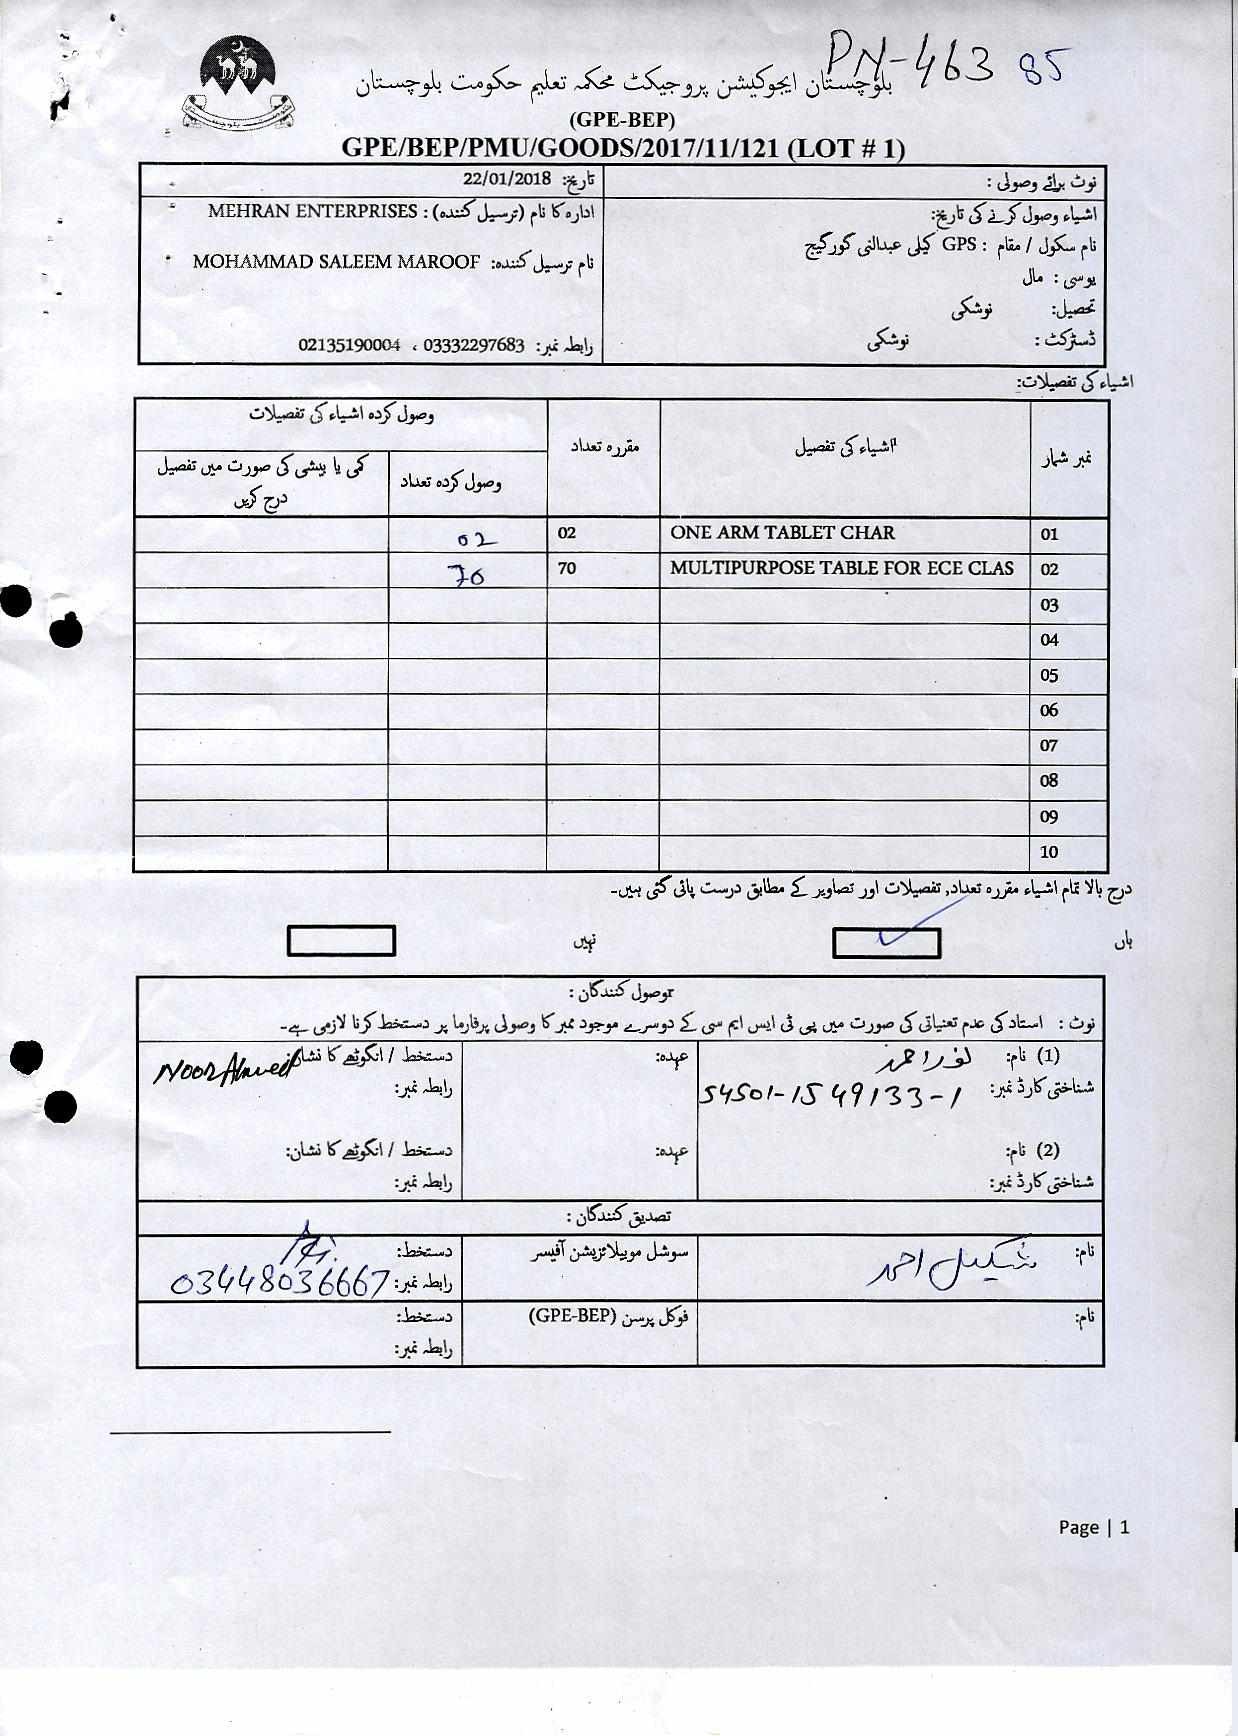 PN-463 85
بلوچستان ایجوکیشن پروجیکٹ محکمہ تعلیم حکومت بلوچستان
(GPE-BEP)
GPE/BEP/PMU/GOODS/2017/11/121 (LOT # 1)
نوٹ برائے وصولی :
اشیاء وصول کرنے کی تاریخ:
نام سکول / مقام : GPS کیلی عبدالنی گورگیج
یوسی : مال
تحصیل: نوشکی
ڈسٹرکٹ : نوشکی
تاریخ: 22/01/2018
ادارہ کا نام (ترسیل کنندہ) : MEHRAN ENTERPRISES
نام ترسیل کنندہ: MOHAMMAD SALEEM MAROOF
رابطہ نمبر: 03332297683 ، 02135190004
اشیاء کی تفصیلات:
نمبر شمار اشیاء کی تفصیل مقررہ تعداد وصول کردہ اشیاء کی تفصیلات
وصول کردہ تعداد کمی یا بیشی کی صورت میں تفصیل درج کریں
01 ONE ARM TABLET CHAR 02 02
02 MULTIPURPOSE TABLE FOR ECE CLAS 70 70
03
04
05
06
07
08
09
10
درج بالا تمام اشیاء مقررہ تعداد, تفصیلات اور تصاویر کے مطابق درست پائی گئی ہیں۔
ہاں ✓ نہیں
وصول کنندگان :
نوٹ : استاد کی عدم تعنیاتی کی صورت میں پی ٹی ایس ایم سی کے دوسرے موجود ممبر کا وصولی پرفارما پر دستخط کرنا لازمی ہے۔
(1) نام: نور احمد عہدہ: دستخط / انگوٹھے کا نشان: Noor Ahmed
شناختی کارڈ نمبر: 54501-1549133-1 رابطہ نمبر:
(2) نام: عہدہ: دستخط / انگوٹھے کا نشان:
شناختی کارڈ نمبر: رابطہ نمبر:
تصدیق کنندگان :
نام: شکیل احمد سوشل موبیلائزیشن آفیسر دستخط:
رابطہ نمبر: 03448036667
نام: فوکل پرسن (GPE-BEP) دستخط:
رابطہ نمبر:
Page | 1